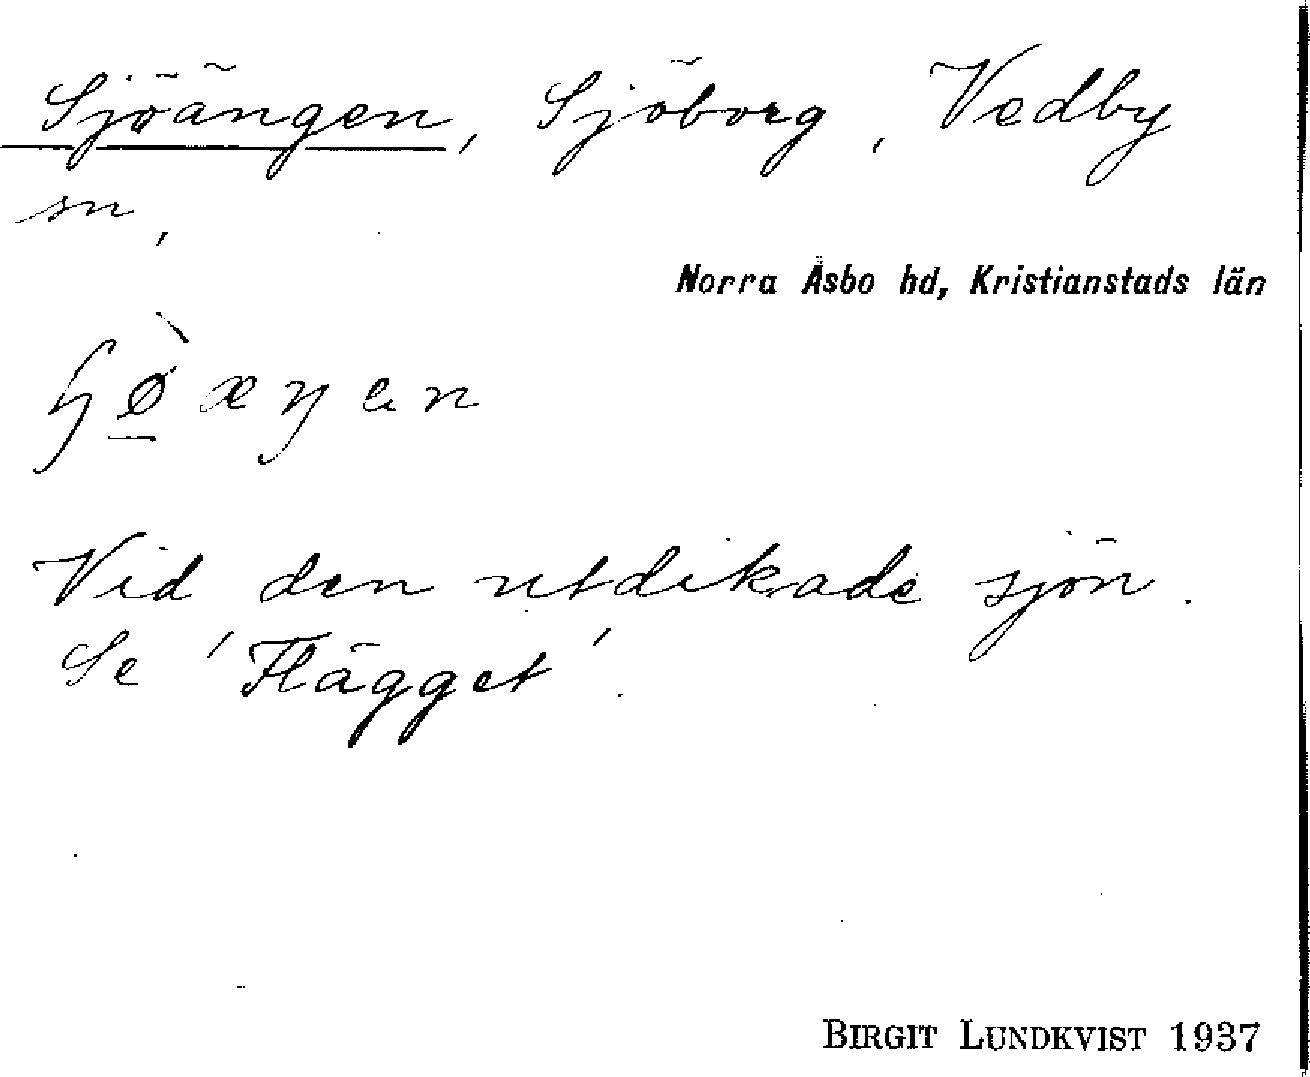 Sjöängen, Sjöborg, Vedby
sn,
Norra Åsbo hd, Kristianstads län
ɧø̠̀æŋen
Vid den utdikade sjön.
Se 'Flägget'.
BIRGIT LUNDKVIST 1937